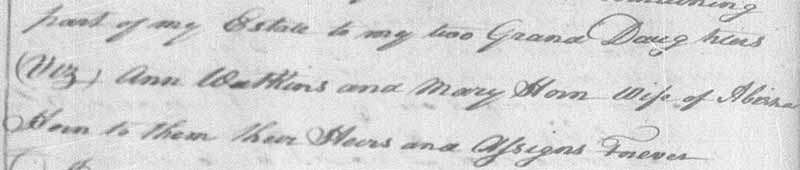 part of my Estate to my two Grand Daughters
(Viz) Ann Watkins and Mary Horn Wife of Abisha
Horn to them their Heirs and Assigns Forever